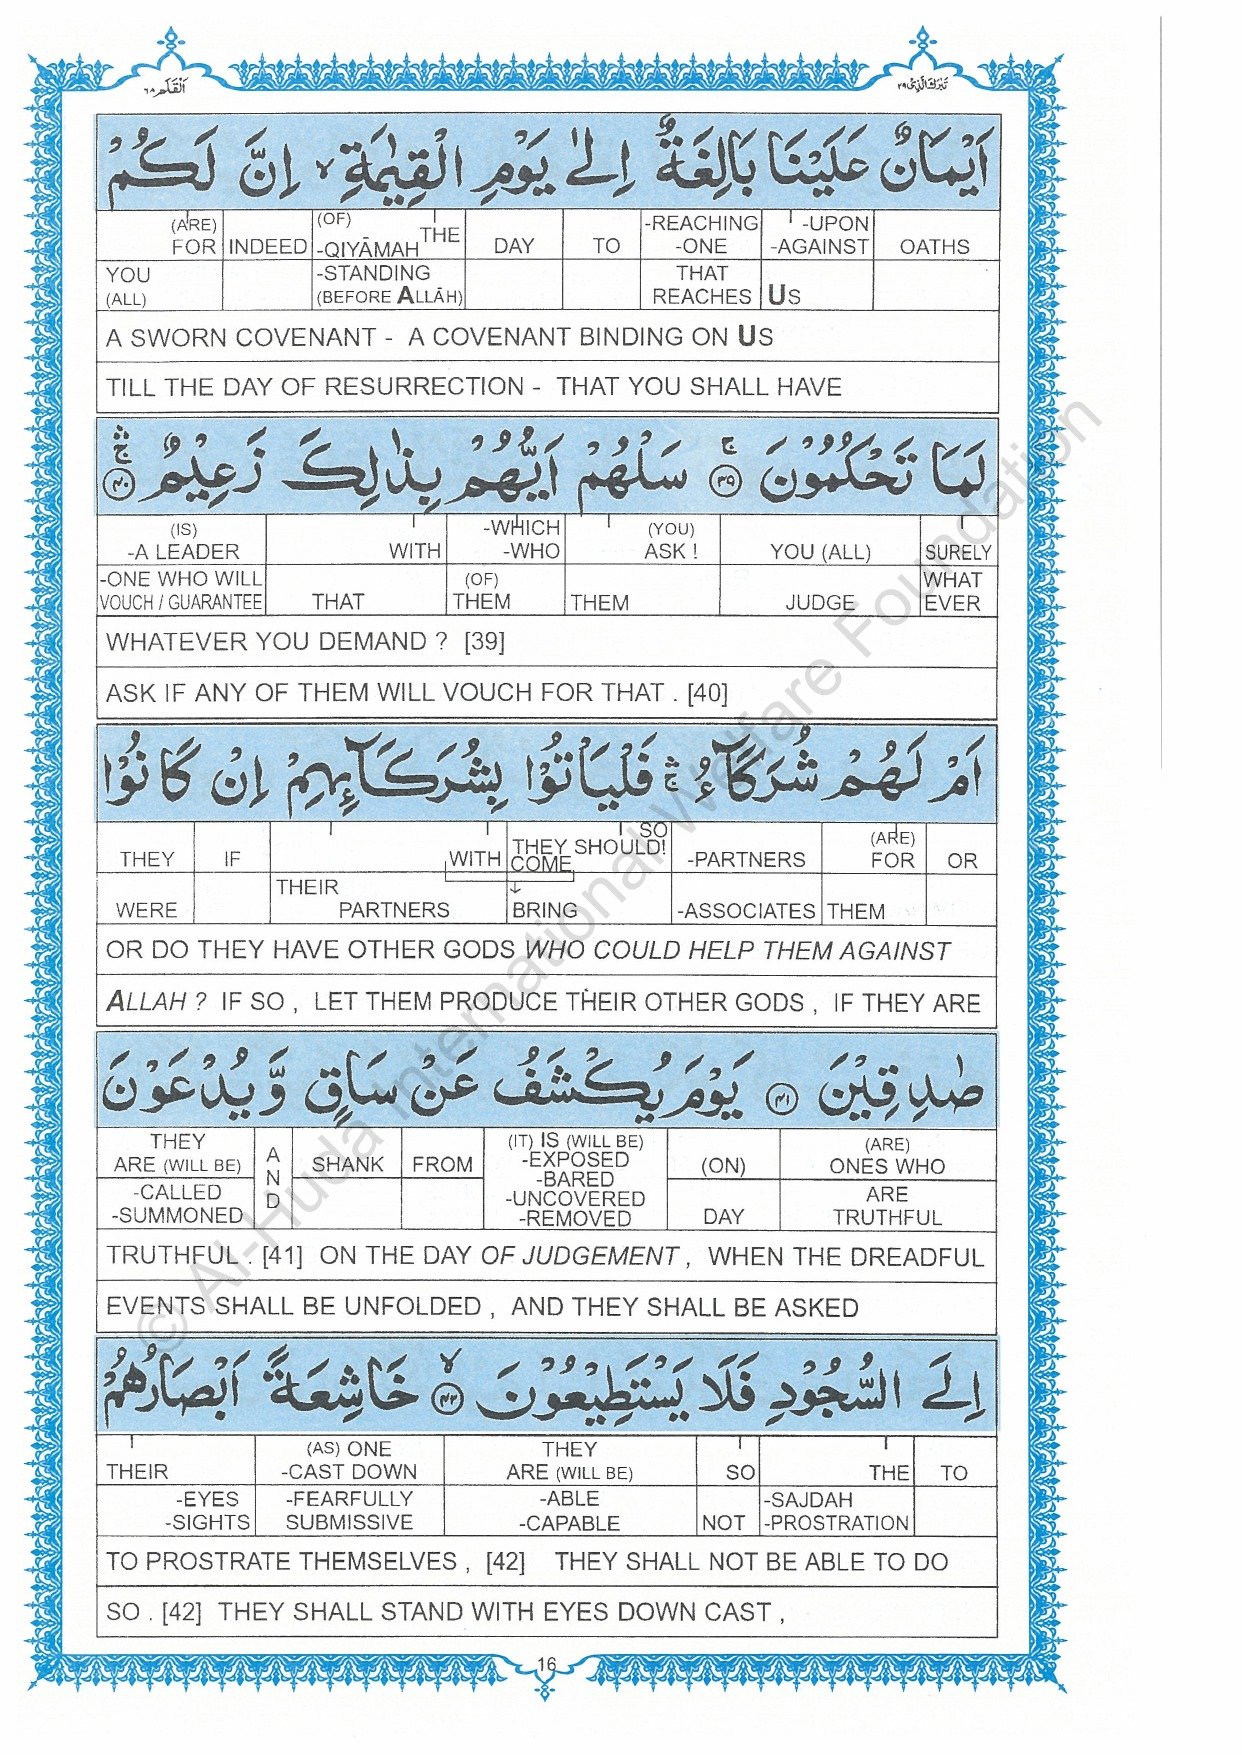 تَبٰرَكَ الَّذِىْ ٢٩
اَلْقَلَم ٦٨
اَيْمَانٌ عَلَيْنَا بَالِغَةٌ اِلٰى يَوْمِ الْقِيٰمَةِ ۙ اِنَّ لَكُمْ
(ARE) (OF) THE -REACHING -UPON
FOR INDEED -QIYĀMAH DAY TO -ONE -AGAINST OATHS
YOU -STANDING THAT
(ALL) (BEFORE ALLĀH) REACHES US
A SWORN COVENANT - A COVENANT BINDING ON US
TILL THE DAY OF RESURRECTION - THAT YOU SHALL HAVE
لَمَا تَحْكُمُوْنَ ۚ ﴿٣٩﴾ سَلْهُمْ اَيُّهُمْ بِذٰلِكَ زَعِيْمٌ ۛۚ ﴿٤٠﴾
(IS) -WHICH (YOU)
-A LEADER WITH -WHO ASK ! YOU (ALL) SURELY
-ONE WHO WILL (OF) WHAT
VOUCH / GUARANTEE THAT THEM THEM JUDGE EVER
WHATEVER YOU DEMAND ? [39]
ASK IF ANY OF THEM WILL VOUCH FOR THAT . [40]
اَمْ لَهُمْ شُرَكَآءُ ۛۚ فَلْيَاْتُوْا بِشُرَكَآئِهِمْ اِنْ كَانُوْا
SO (ARE)
THEY IF WITH THEY SHOULD! COME -PARTNERS FOR OR
THEIR
WERE PARTNERS ↓ BRING -ASSOCIATES THEM
OR DO THEY HAVE OTHER GODS WHO COULD HELP THEM AGAINST
ALLAH ? IF SO , LET THEM PRODUCE THEIR OTHER GODS , IF THEY ARE
صٰدِقِيْنَ ﴿٤١﴾ يَوْمَ يُكْشَفُ عَنْ سَاقٍ وَّيُدْعَوْنَ
THEY (IT) IS (WILL BE) (ARE)
ARE (WILL BE) AND SHANK FROM -EXPOSED (ON) ONES WHO
-CALLED -BARED ARE
-SUMMONED -UNCOVERED DAY TRUTHFUL
-REMOVED
TRUTHFUL . [41] ON THE DAY OF JUDGEMENT , WHEN THE DREADFUL
EVENTS SHALL BE UNFOLDED , AND THEY SHALL BE ASKED
اِلَى السُّجُوْدِ فَلَا يَسْتَطِيْعُوْنَ ۙ ﴿٤٢﴾ خَاشِعَةً اَبْصَارُهُمْ
(AS) ONE THEY
THEIR -CAST DOWN ARE (WILL BE) SO THE TO
-EYES -FEARFULLY -ABLE -SAJDAH
-SIGHTS SUBMISSIVE -CAPABLE NOT -PROSTRATION
TO PROSTRATE THEMSELVES , [42] THEY SHALL NOT BE ABLE TO DO
SO . [42] THEY SHALL STAND WITH EYES DOWN CAST ,
16
© Al-Huda International Welfare Foundation